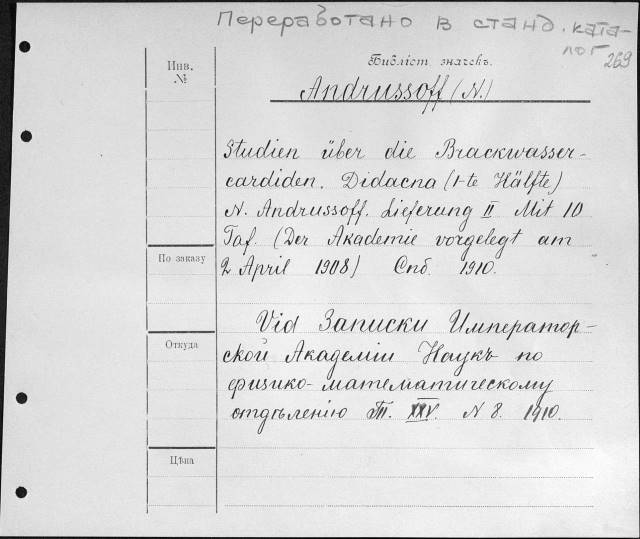 Переработано в станд. ката-
лог
269
Инв.
№
Библіот. значекъ.
Andrussoff (N.)
Studien über die Brackwasser-
cardiden. Didacna (1-te Hälfte)
N. Andrussoff. Lieferung II Mit 10
Taf. (Der Akademie vorgelegt am
2 April 1908) Спб. 1910.
По заказу
Vid Записки Император-
ской Академіи Наукъ по
Откуда
физико-математическому
отдѣленію Т. XXV. N 8. 1910.
Цѣна